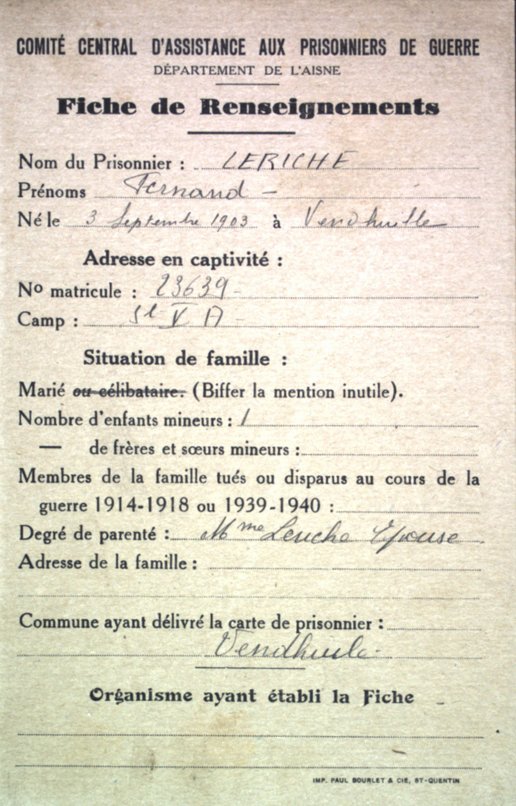 COMITÉ CENTRAL D'ASSISTANCE AUX PRISONNIERS DE GUERRE
DÉPARTEMENT DE L'AISNE
Fiche de Renseignements
Nom du Prisonnier : LERICHE
Prénoms Fernand -
Né le 3 Septembre 1903 à Vendhuille
Adresse en captivité :
No matricule : 23639 -
Camp : St V A -
Situation de famille :
Marié ou célibataire. (Biffer la mention inutile).
Nombre d'enfants mineurs : 1
— de frères et sœurs mineurs :
Membres de la famille tués ou disparus au cours de la
guerre 1914-1918 ou 1939-1940 :
Degré de parenté : Mme Leriche Epouse
Adresse de la famille :
Commune ayant délivré la carte de prisonnier :
Vendhuile -
Organisme ayant établi la Fiche
IMP. PAUL BOURLET & CIE, ST-QUENTIN